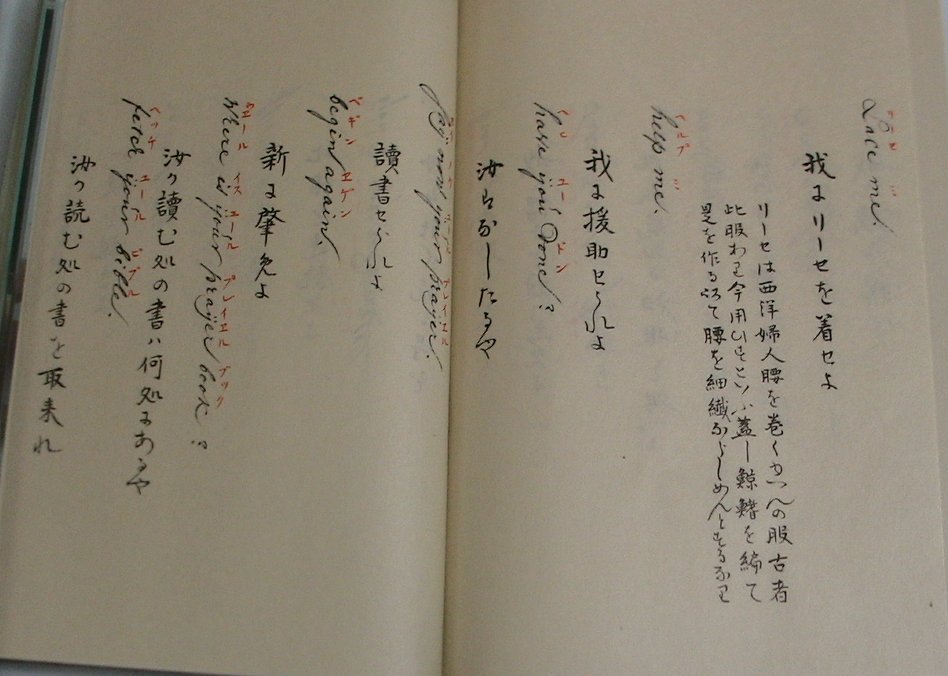 ミ
Lace me.
我にリーセを着せよ
リーセは西洋婦人腰を巻く の服古者
此服 今用ひずといふ蓋し鯨鰭を編て
是を作る 腰を細繊ならしめんとするなり
ヘルプ ミ
help me.
我に援助せられよ
ユー ドン
have you done?
汝 なしたるや
ユール プレイエル
Say now your prayer.
讀書せられよ
ベギン エゲン
begin again.
新に肇免よ
ウェール イス ユール プレイエル ブック
where is your prayer book?
汝の讀む処の書ハ何処にあるや
ヘッチ ユール ビブル
fetch your bible.
汝の読む処の書を取来れ